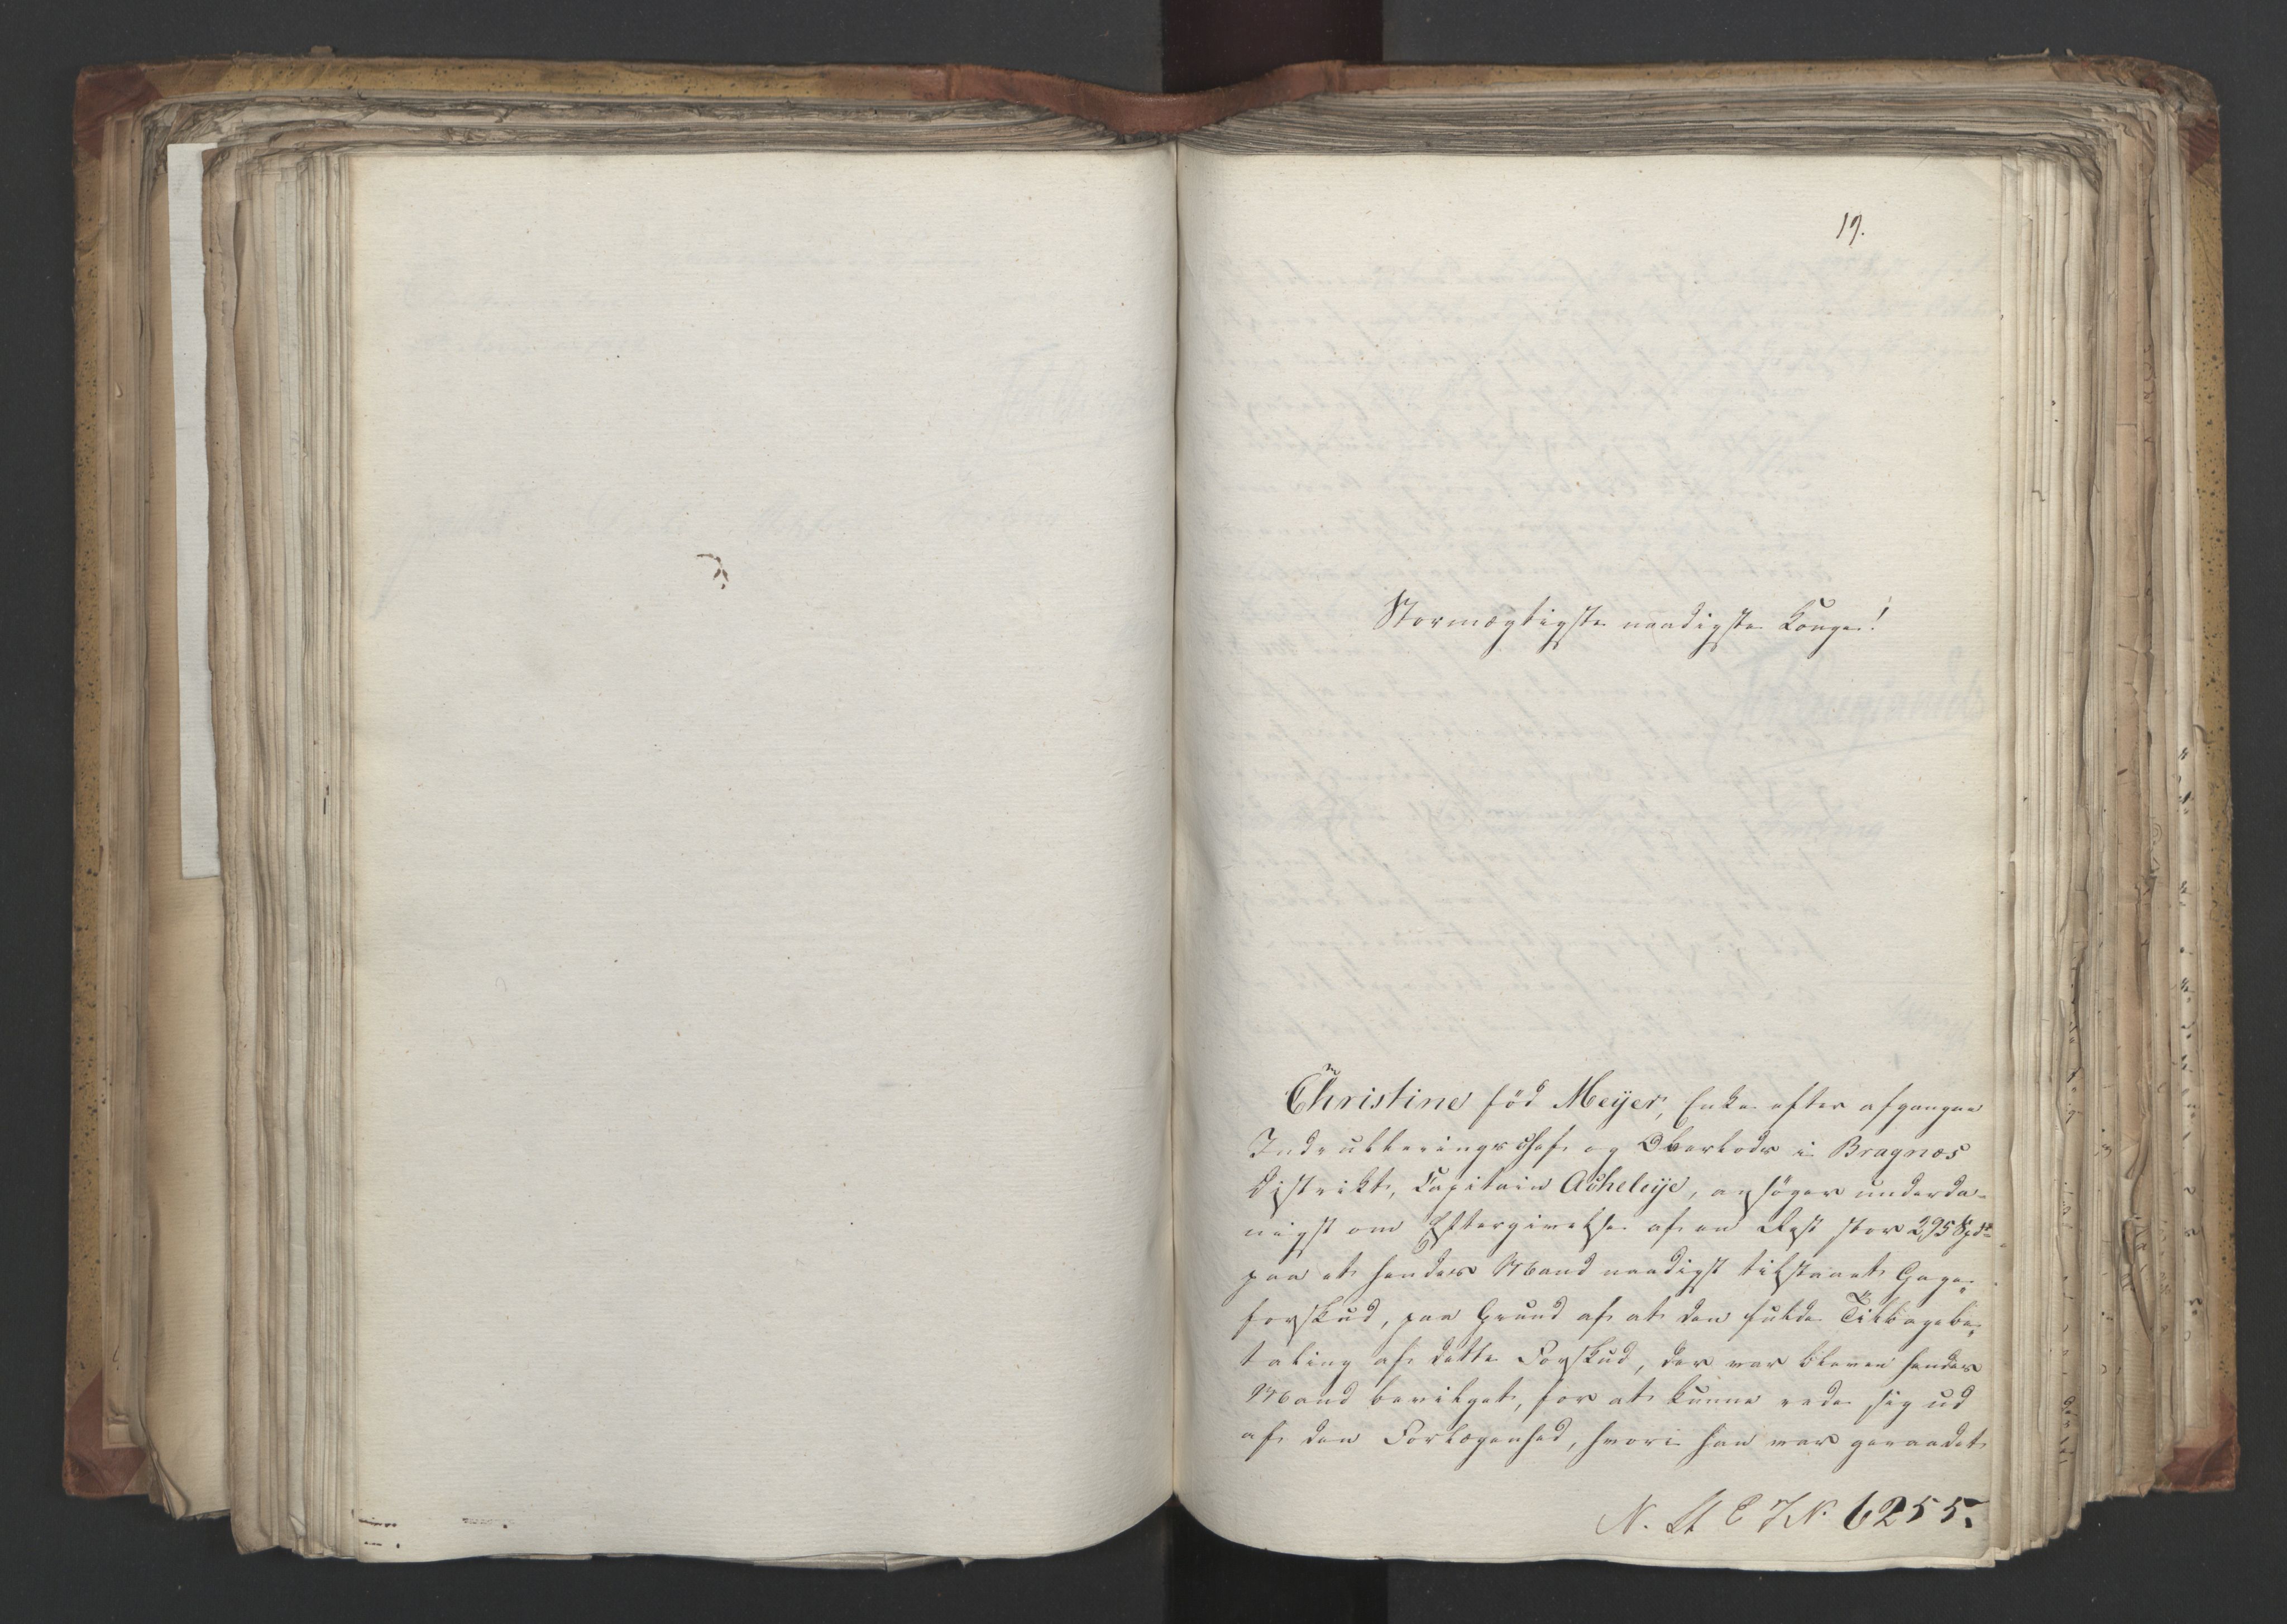 19.
Stormægtigste naadigste Konge!
Christine född Meyer, Enke efter afgangne
Indrulleringschef og Overlods i Bragnæs
Distrikt, Capitain Acheleye, ansöger underda-
nigst om Eftergivelse af en Rest stor 295 Spd
paa et hendes Mand naadigst tilstaaet Gage-
forskud, paa Grund af at den fulde Tilbagebe-
taling af dette Forskud, der var bleven hendes
Mand bevilget, for at kunne rede sig ud
af den Forlegenhed, hvori han var geraadet
6255.